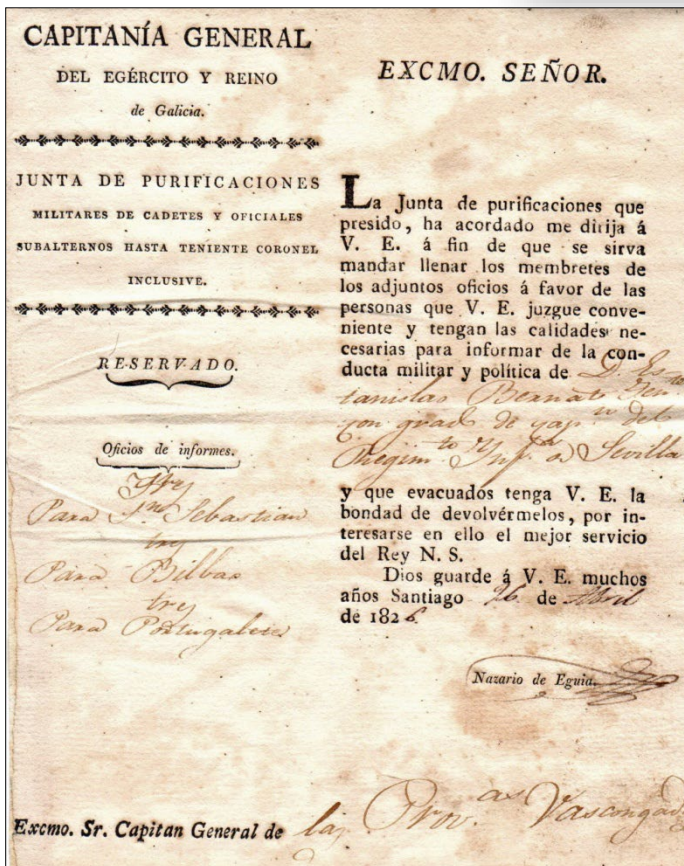 CAPITANÍA GENERAL
DEL EGÉRCITO Y REINO
de Galicia.
JUNTA DE PURIFICACIONES
MILITARES DE CADETES Y OFICIALES
SUBALTERNOS HASTA TENIENTE CORONEL
INCLUSIVE.
RESERVADO.
Oficios de informes.
Tres
Para Sn Sebastian
tres
Para Bilbao
tres
Para Portugalete
EXCMO. SEÑOR.
La Junta de purificaciones que
presido, ha acordado me dirija á
V. E. á fin de que se sirva
mandar llenar los membretes de
los adjuntos oficios á favor de las
personas que V. E. juzgue conve-
niente y tengan las calidades ne-
cesarias para informar de la con-
ducta militar y política de D. Es
tanislao Bernat Tente
con grado de cap.n del
Regim.to Ynf.a de Sevilla
y que evacuados tenga V. E. la
bondad de devolvérmelos, por in-
teresarse en ello el mejor servicio
del Rey N. S.
Dios guarde á V. E. muchos
años Santiago 26 de Abril
de 1826.
Nazario de Eguia.
Excmo. Sr. Capitan General de las Prov.as Vascongad